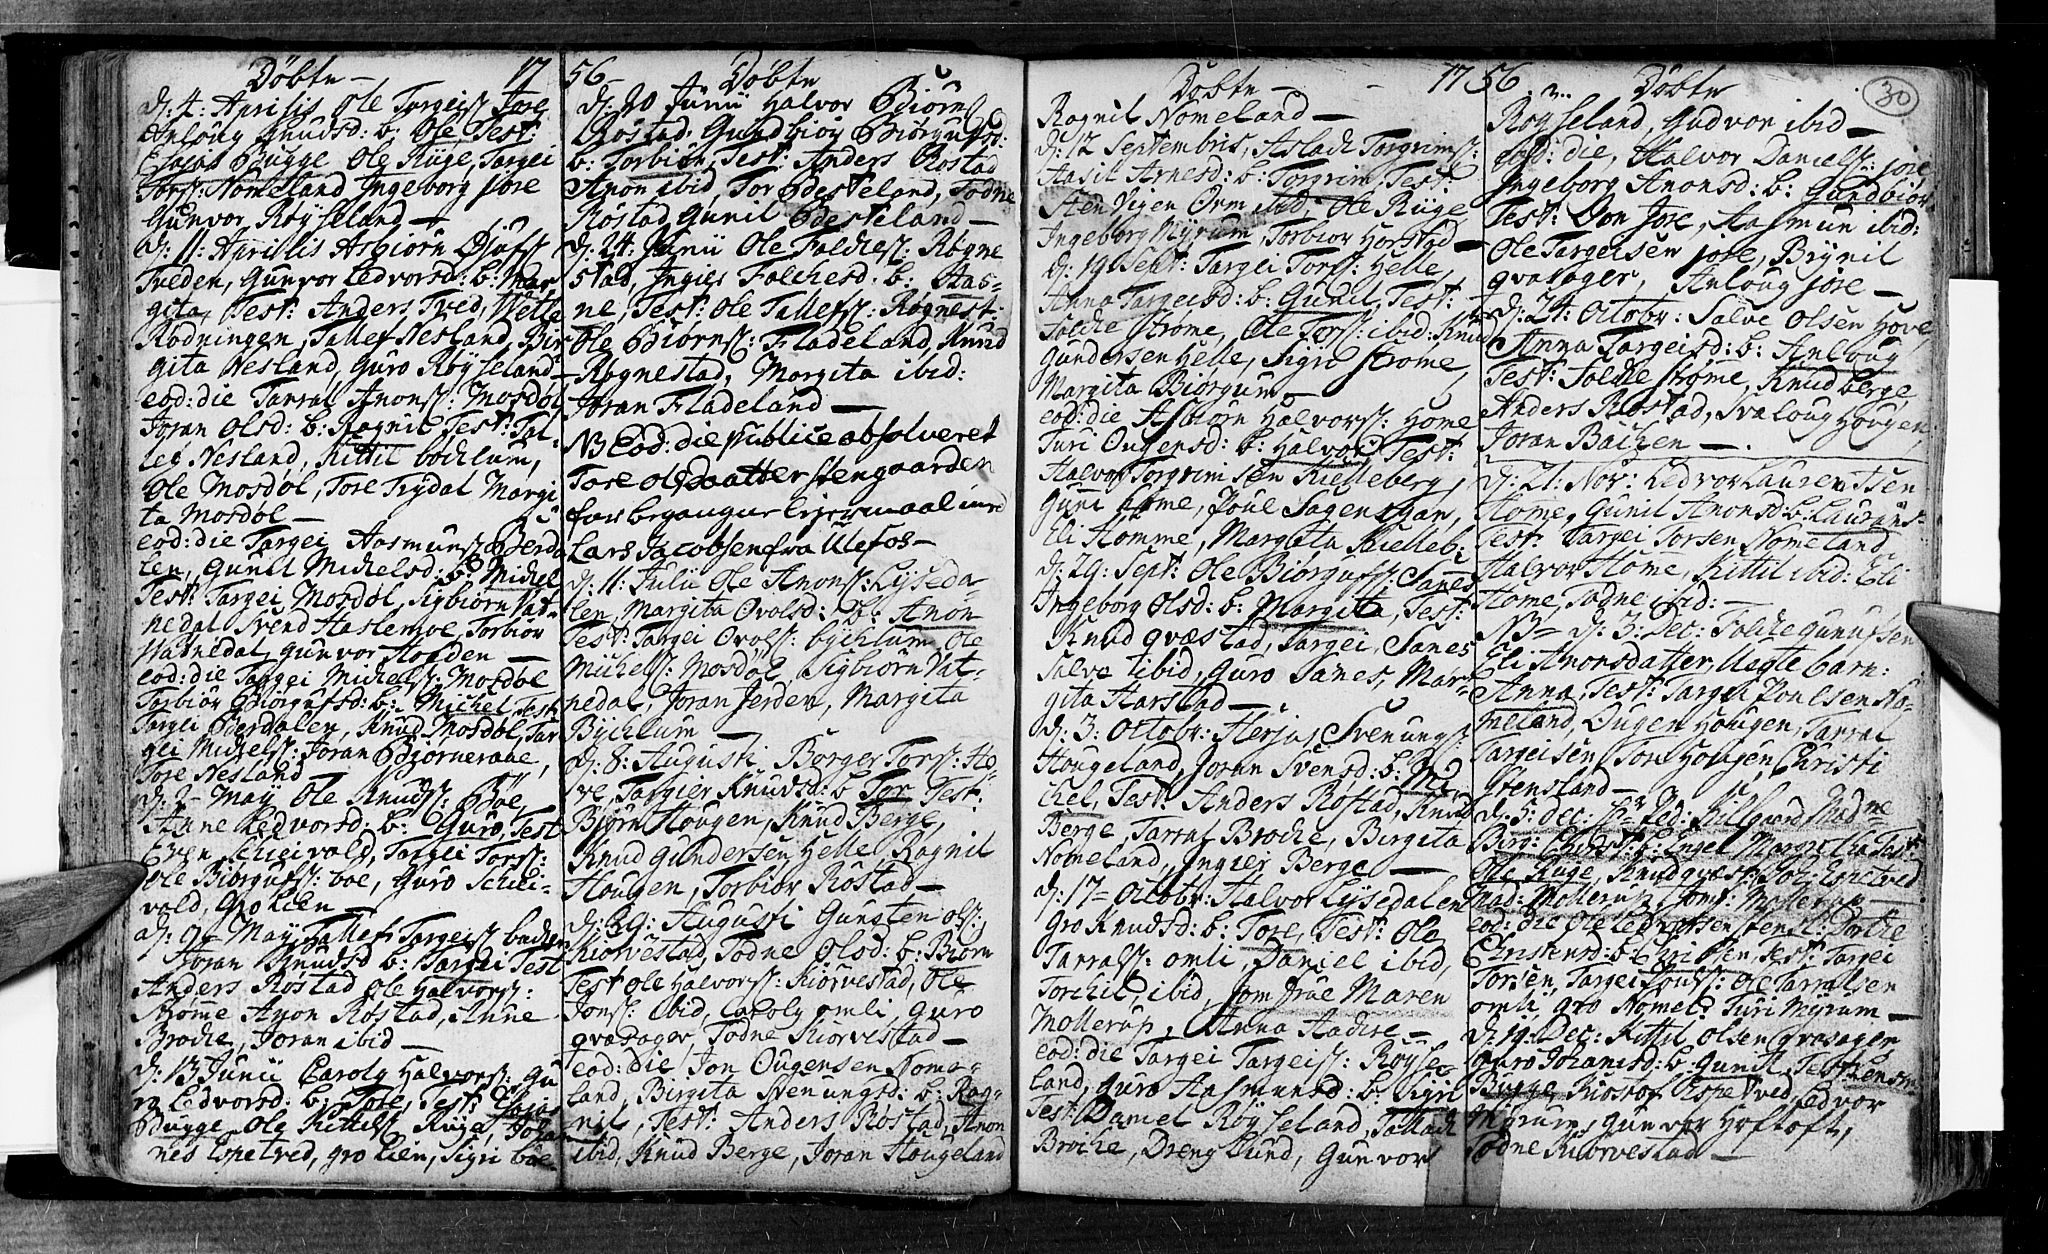 Döbte – 17
d: 4: Aprilis Ole Targeis: Jore
Anloug Knudsd: b: Ole Test:
Esaias Bugge Ole Ruge, Targei
Tors: Nomeland Ingeborg Jore
Gunvor Röysseland —
d: 11: Aprilis Asbiörn Djufs:
Tveden, Gunvor Ledvorsd: b: Mar
gita, Test: Anders Tved, Wetle
Rodningen, Tallef Nesland, Bir
gita Nesland, Guro Röysseland
eod: die Tarral Anons: Mosdöl
Joran Olsd: b: Ragnil Test: Tal-
lef Nesland, Kittil böchlum,
Ole Mosdöl, Tore Trydal Margi
ta Mosdöl —
eod: die Targei Aasmuns: Berda
len, Gunil Michelsd: b: Michel
Test: Targei Mosdöl Sigbiörn Vat-
nedal Svend Haslemoe, Torbiör
Watnedal, Gunvor Holden —
eod: die Targei Michels: Mosdöl
Torbiör Biörgufsd: b: Michel, Test
Targei Berdalen, Knud Mosdöl, Tar
gei Michels: Joran Biörneraae,
Tore Nesland
d: 2 May Ole Knuds: Böe,
Anne Ledvorsd: b: Guro, Test
Even Scheivald, Targei Tors:
Ole Biörgufs: boe, Guro Schei-
vald, Gro Lien —
d: 9 May Tallef Targeis: bachen
Joran Knudsd b: Targei Test
Anders Rostad Ole Halvors:
Anon Rostad, Anne
Broche, Joran ibid —
d: 13 Junii Caroly Halvors: Gu
ro Ledvorsd: b: Tore, Test: Esaias
Bugge, Ole Kittils: Ruge, Johan
nes Espetved, Gro Lien, Sigri böe
56 – Döbte
d: 20 Junii Halvor Biörns:
Rostad: Gundbiör Biörgufsd:
b: Torbiör, Test: Anders Rostad
Anon ibid, Tor Besteland, Todne
Rostad, Gunil Besteland —
d: 24 Junii Ole Falches: Rogne
stad, Ingier Falchesd: b: Aas-
ne, Test: Ole Tallefs: Rognest:
Ole Biörns: Fladeland, Knud
Rognestad, Margita ibid:
Joran Fladeland —
NB Eod: die publice absolveret
Tore olsdaatter stengaarden
for begangne leiermaal med
Lars Jacobsen fra Ulefos –
d: 11: Julii Ole Anons: Lyseda-
len, Margita Ovolsd: b: Anon
Test: Targei Ovols: bychlum Ole
Michels: Mosdöl, Sigbiörn Vat-
nedal, Joran Jerden, Margita
Bychlum —
d: 8: Augusti Börger Tors: Ho-
ve, Targier Knudsd: b Tor Test:
Biörn Hougen, Knud Berge,
Knud Gundersen Helle, Ragnil
Hougen, Torbiör Rostad —
d: 29: Augusti Gunsten Ols:
Kiorvestad, Todne Olsd: b: Biörn
Test Ole Halvors: Kiorvestad, Ole
Jons: ibid, Caroly omli, Guro
qvasager, Todne Kiorvestad —
eod: die Jon Ougensen Nome-
land, Birgita Svenungsd: b: Rag-
nil, Test: Anders Rostad, Anon
ibid, Knud Berge, Joran Hougeland
Döbte – 1756
Ragnil Nomeland —
d: 12 Septembris, Aslach Torgrims:
Aasil Arnesd: b: Torgrim, Test:
Sten Vigen Orm ibid: Ole Ruge
Ingeborg Myrum, Torbiör Horstad —
d: 19 Sept: Targei Tors: Helle,
Anna Targeisd: b: Gunil, Test:
Folche Strome, Ole Tors: ibid: Knud
Gundersen Helle, Sigri Strome,
Margita Biorgum –
eod: die Asbiörn Halvors: Home
Turi Ougensd: b: Halvor, Test:
Halvor Torgrimsen Kielleberg,
Guni Home, Poul Sagensgan,
Eli Homme, Margita Kielleb:
d: 29: Sept: Ole Biörgufs: Sanes
Ingeborg Olsd: b: Margita, Test:
Knud qvæstad, Targei Sanes
Salve ibid, Guro Sanes, Mar-
gita Harstad —
d: 3: Octobr: Herjus Svenungs:
Hougeland, Joran Svensd: b: Mi-
chel, Test: Anders Rostad, Knud
Berge, Tarral Broche, Birgita
Nomeland, Ingier Berge —
d: 17 Octobr: Halvor Lysedalen
Gro Knudsd: b: Tore, Test: Ole
Tarrals: omli, Daniel ibid,
Torchil, ibid, Jomfrue Maren
Mollerup, Anna Aadne —
eod: die Targei Targeis: Röysse-
land, Guro Aasmunsd: b: Sigri
Test: Daniel Röysseland, Tallach
Broche, Dreng Lund, Gunvor
Döbte
30
Röysseland, Gudvor ibid —
eod: die, Halvor Daniels: jore
Ingeborg Anonsd: b: Gundbiör
Test: Don Jore, Aasmun ibid:
Ole Targeisen jore, Brynil
qvasager, Anloug jore —
d: 24: Octobr: Salve Olsen Hove
Anna Targeisd: b: Anloug
Test: Folche Strome, Knud berge
Anders Rostad, Svaloug Hougen,
Joran Bachen —
d: 21: Nov: Ledvor Laurentsen
Home, Gunil Anonsd: b: Laurans-
Test: Targei Torsen Nomeland,
Halvor Home, Kittil ibid: Eli
Home, Todne ibid: —
NB d: 3: Dec: Folche Gunufsen
Eli Anonsdatter, Uegte barn:
Anna, Test: Targei Poulsen No-
meland, Ougen Hougen, Tarral
Targeisen, Tore Hougen, Christi
Stensland —
d: 5: Dec: Sr Ped: Killgaard Mad:ne
Birg: Christ: b: Engel Margretha Test:
Ole Ruge, Knud qvæst: Joh: Espetved
Mad: Mollerup, Jomf: Mollerup
eod: die Ole Ledvorsen
Christensd: b: Christen, Test: Targei
Torsen, Targei Pouls: Ole Tarralsen
omli, Gro Nomeld Turi Myrum —
d: 19: Dec: Kittil Olsen qvasager
Guro Johanisd: b: Gunil, Test: Hensm:
Bugge, Kiostof Espetved, Ledvor
Myrum, Gunvor Hoftoft,
Todne Kiorvestad —